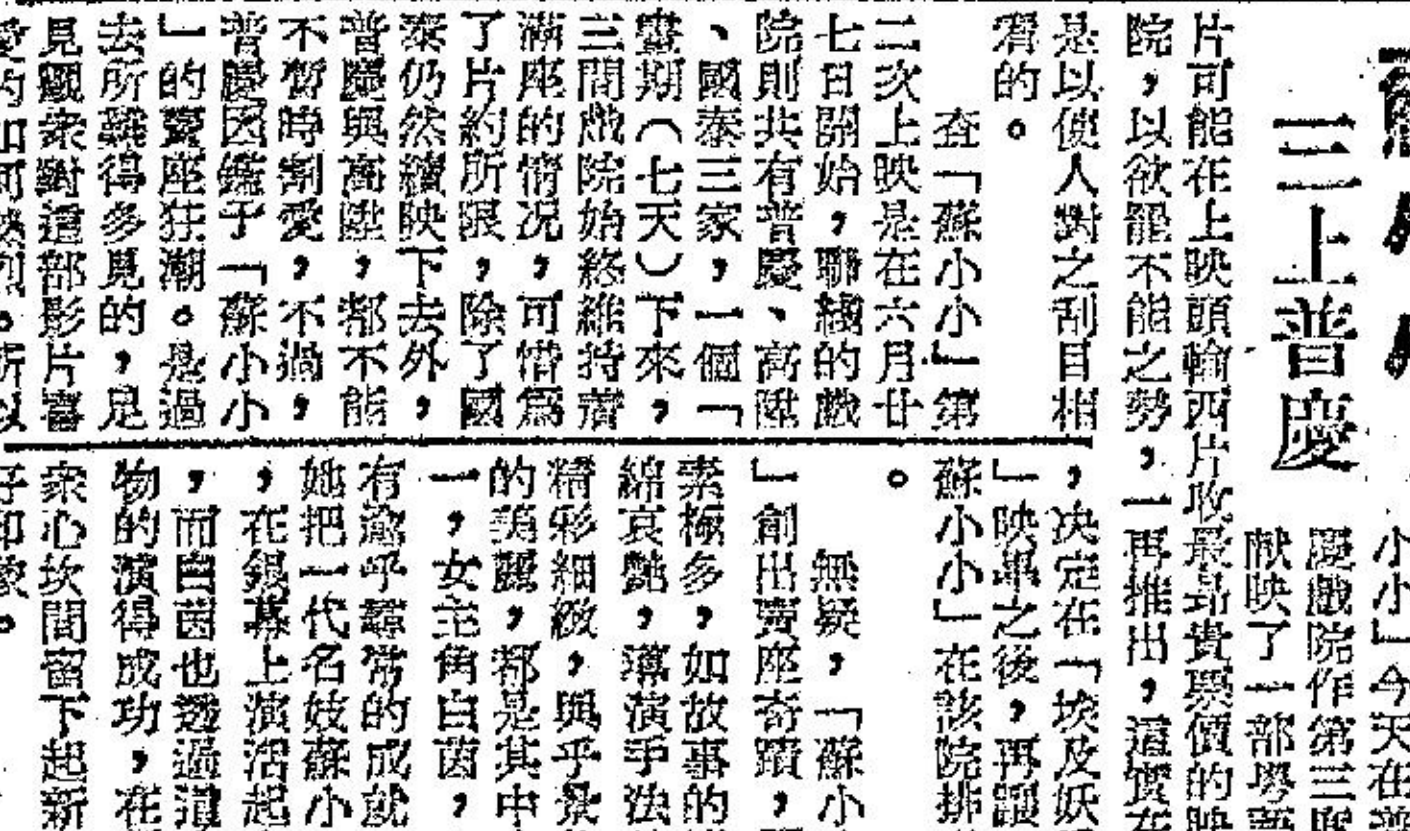 三上普慶
小小」今天在普
慶戲院作第三度
献映了一部粵語
片可能在上映頭輪西片收最昂貴票價的映
院，以欲罷不能之勢，一再推出，這實在
是以使人對之刮目相
看的。
查「蘇小小」第
二次上映是在六月廿
七日開始，聯綫的戲
院則共有普慶、高陞
、國泰三家，一個「
壹期（七天）下來，
三間戲院始終維持着
滿座的情况，可惜爲
了片約所限，除了國
泰仍然續映下去外，
普慶與高陞，都不能
不暫時割愛，不過，
普慶因鑑于「蘇小小
」的賣座狂潮。是過
去所難得多見的，足
見觀衆對這部影片喜
愛的如何熱烈。所以
，决定在「埃及妖
」映畢之後，再讓
蘇小小」在該院排
。
無疑，「蘇小
」創出賣座奇蹟，
素極多，如故事的
綿哀艷，導演手法
精彩細緻，與乎景
的美麗，都是其中
一，女主角白茵，
有逾乎尋常的成就
她把一代名妓蘇小
，在銀幕上演活起
，而白茵也透過這
物的演得成功，在
衆心坎間留下起新
好印象。